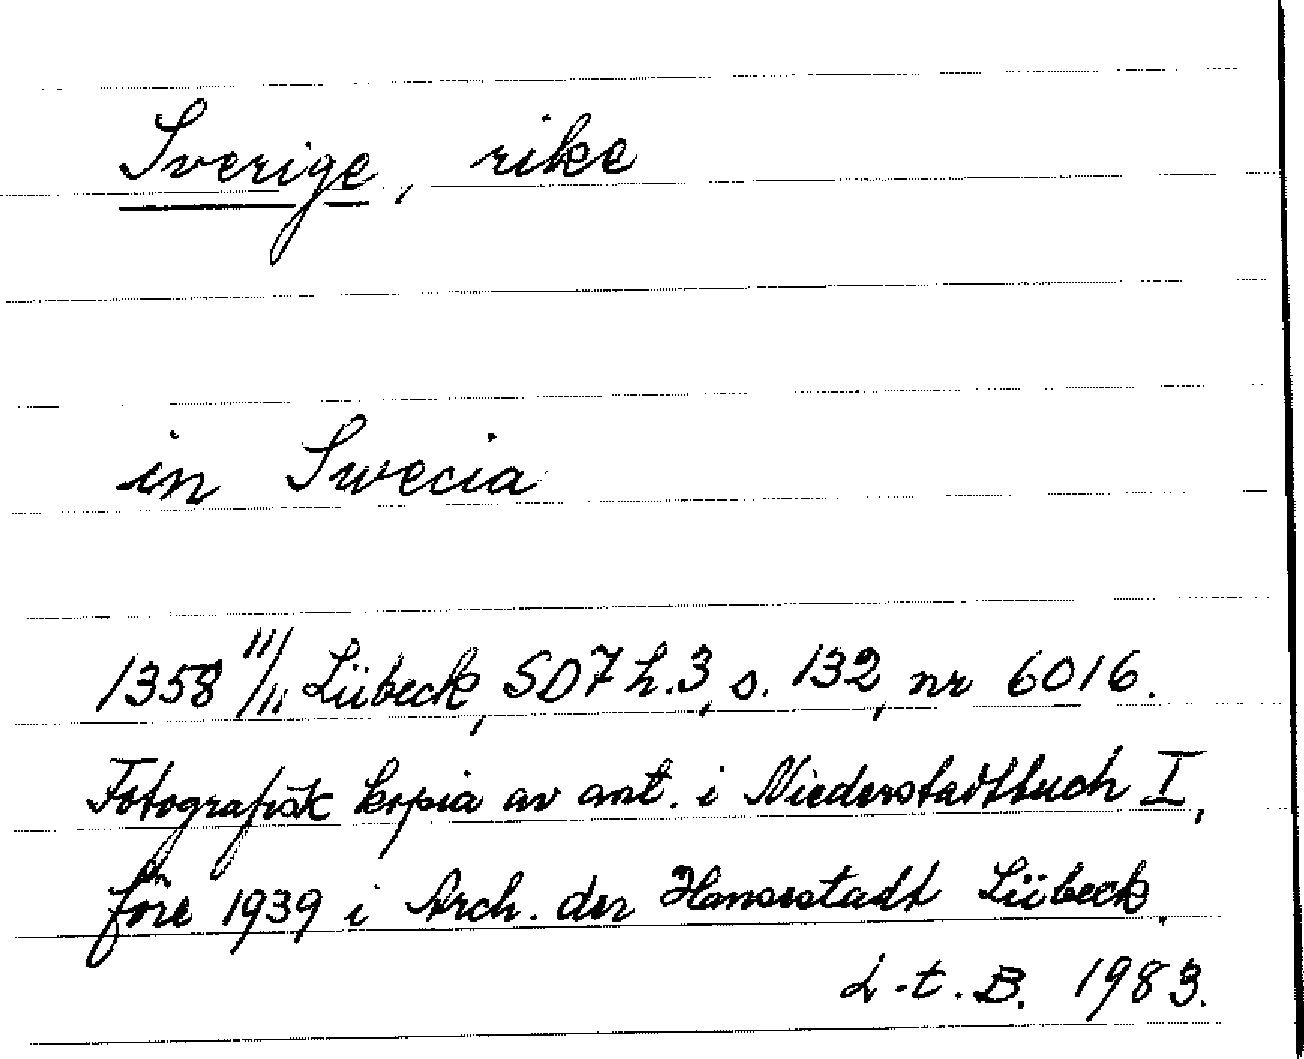 Sverige, rike
in Swecia
1358 11/11 Lübeck, SD7 h.3, s. 132, nr 6016.
Fotografisk kopia av ant. i Niederstadtbuch I,
före 1939 i Arch. der Hansestadt Lübeck.
L-t. B. 1983.